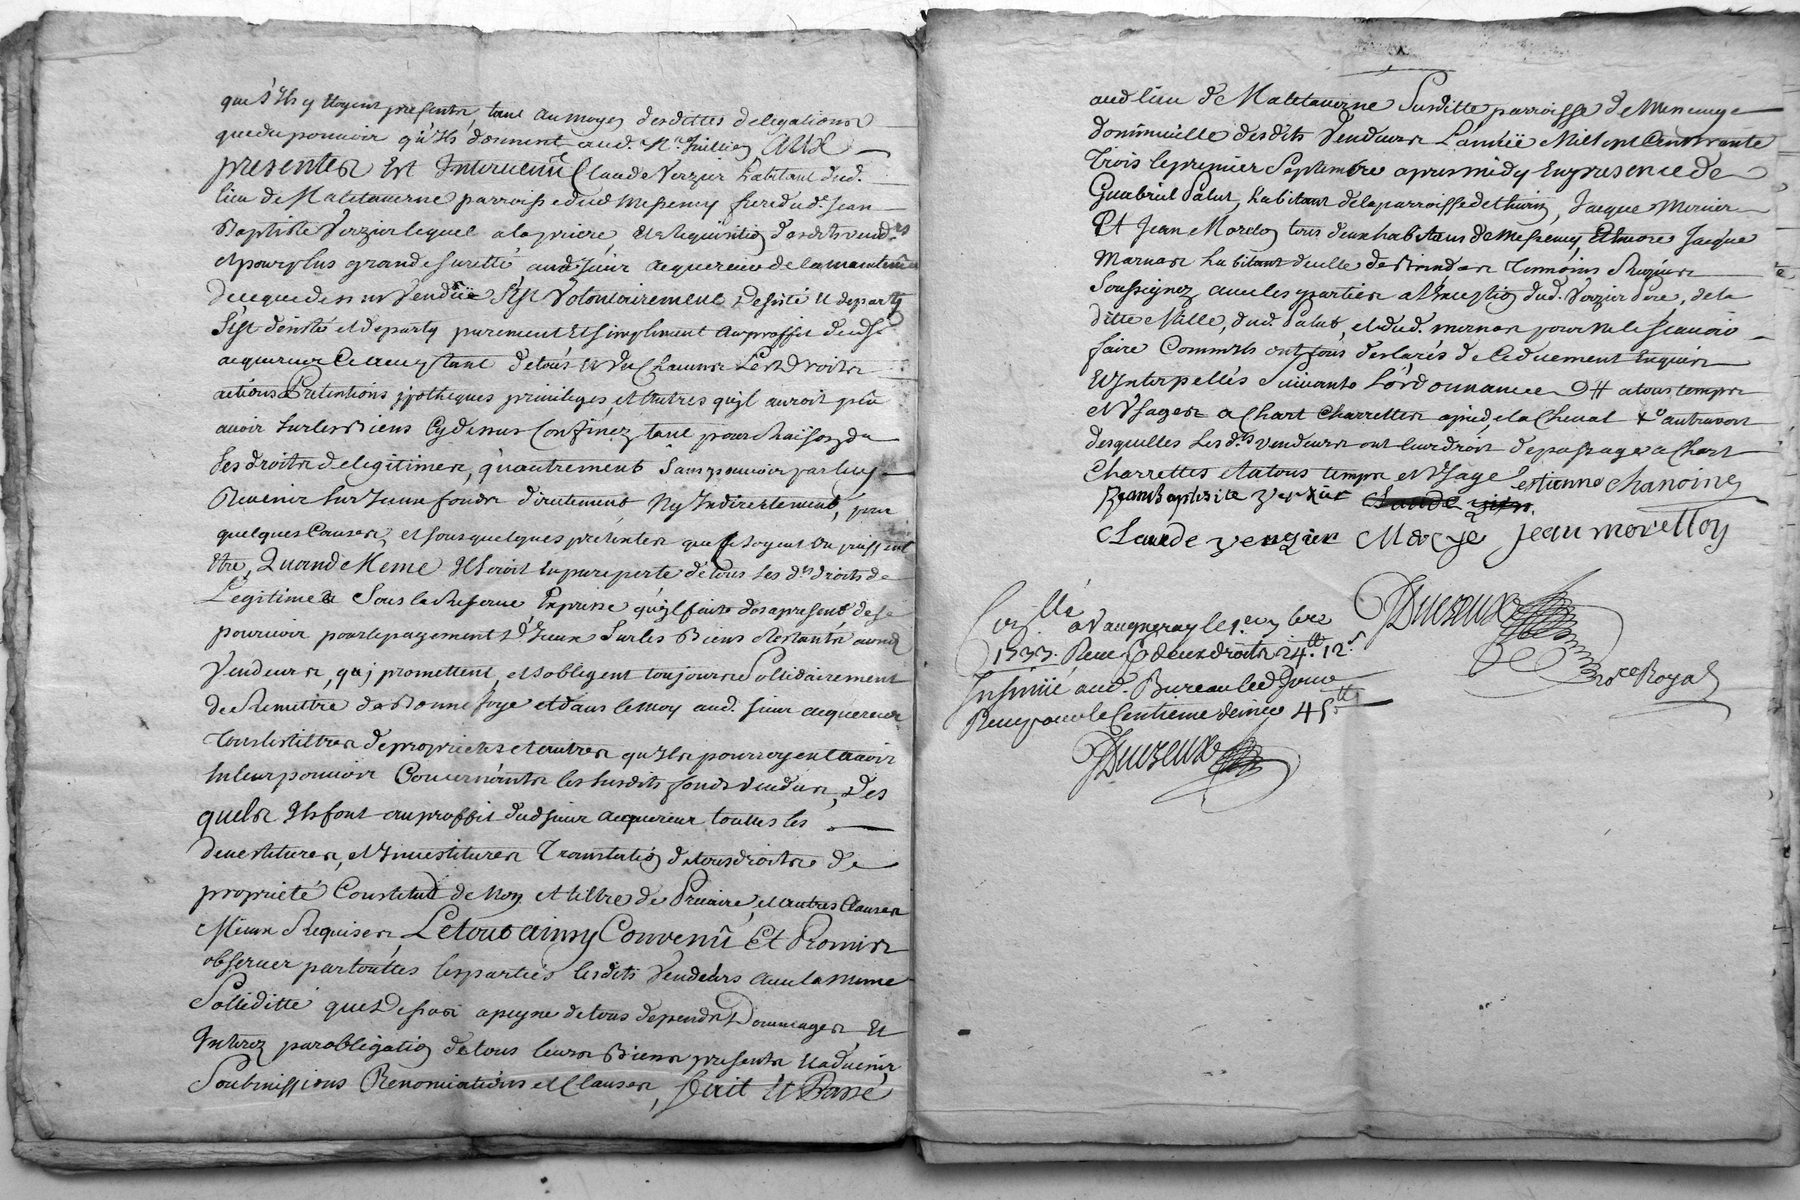 que s'ils y etoyent presents, tant au moyen desdittes delegations
que du pouvoir qu'ils donnent aud. Me. AUX
presentes Est Intervenû Claude Verzier habitant dud.
lieu de Maletaverne parroisse dud Messemy frere dud. Jean
Baptiste Verzier lequel a la priere, et requisition desdits vendrs
et pour plus grande suretté aud sieur acquereur de la maintenüe
de ce que dessus vendüe s'est volontairement desisté et departy
s'est desisté et departy purement et simplement au proffit dud sr
acquereur ce acceptant de tous et un chacuns les droits
actions Pretentions ypotheques privileges, et autres qu'il auroit pû
avoir sur les biens cy dessus confinez tant pour raison du
ses droits de legitimes, qu'autrement sans pouvoir par luy
Revenir sur iceux fonds directement Ny Indirectement, pour
quelques causes, et sous quelques pretextes que ce soyent ou puissent
Etre, Quand Meme Il seroit en pure perte de tous ses dts droits de
Legitime Sous la Reserve Expresse qu'il faire des a present de se
pourvoir pour le payement d'iceux sur les Biens restants auxd
Vendeurs, qui promettent, et s'obligent toujours Sollidairement
de Remettre de Bonne foye et dans le moy aud. sieur acquereur
tous les tiltres de proprietes et autres qu'ils pourroyent avoir
en leur pouvoir Concernants les susdits fonds vendus, Des
quels Ils font au proffit dud sieur acquereur touttes les
devestitures, et Investitures Translation de tous droits de
proprieté Constitut de Nom et tiltre de Precaire, et autres Clauses
Mieux Requises, Le tout ainsy Convenû Et Promis
observer par touttes les parties lesdits Vendeurs avec la meme
Sollidité que Dessus a peyne de tous depends Dommages Et
Interez par obligation de tous leurs Biens presents et advenir
Soubmissions Renonciations et Clauses, Fait Et Passé
aud lieu de Maletaverne Susditte parroisse de Messemy
domicille desdits Vendeurs L'année Mil sept Cent trante
Trois le premier Septembre apres midy En presence de
Guabriel Palut, habitant de la parroisse de thurin, Jacque Mercier
Et Jean Moreton tous deux habitans de Messemy, Et encore Jacque
Marnas habitant de celle de Brindas Temoins Requis
Soussignez avec les parties a l'Exception dud. Verzier Pere, de la
ditte Mille, dud. Palut, et dud. marnas pour ne le scavoir
faire Comm'ils ont tous declarés de ce duement Enquis
Et Interpellés Suivants L'ordonnance 94 a tous temps
et Usages a Chart Charrettes a pied, et a Cheval & au travers
desquelles les dts vendeurs ont leur droit de passage a Chart
Charrettes et a tous temps et Usage estienne chanoine
Jean Baptiste Verzier
Claude verzier Mercye Jean moretton
Duczeux
Nore Royal
Con.lle a Vaugneray le 9e 7bre
1733. Receu deux droits 24tt. 12s.
Insinüé aud. Bureau led Jour
Receu pour le Centieme denier 45tt
Duczeux